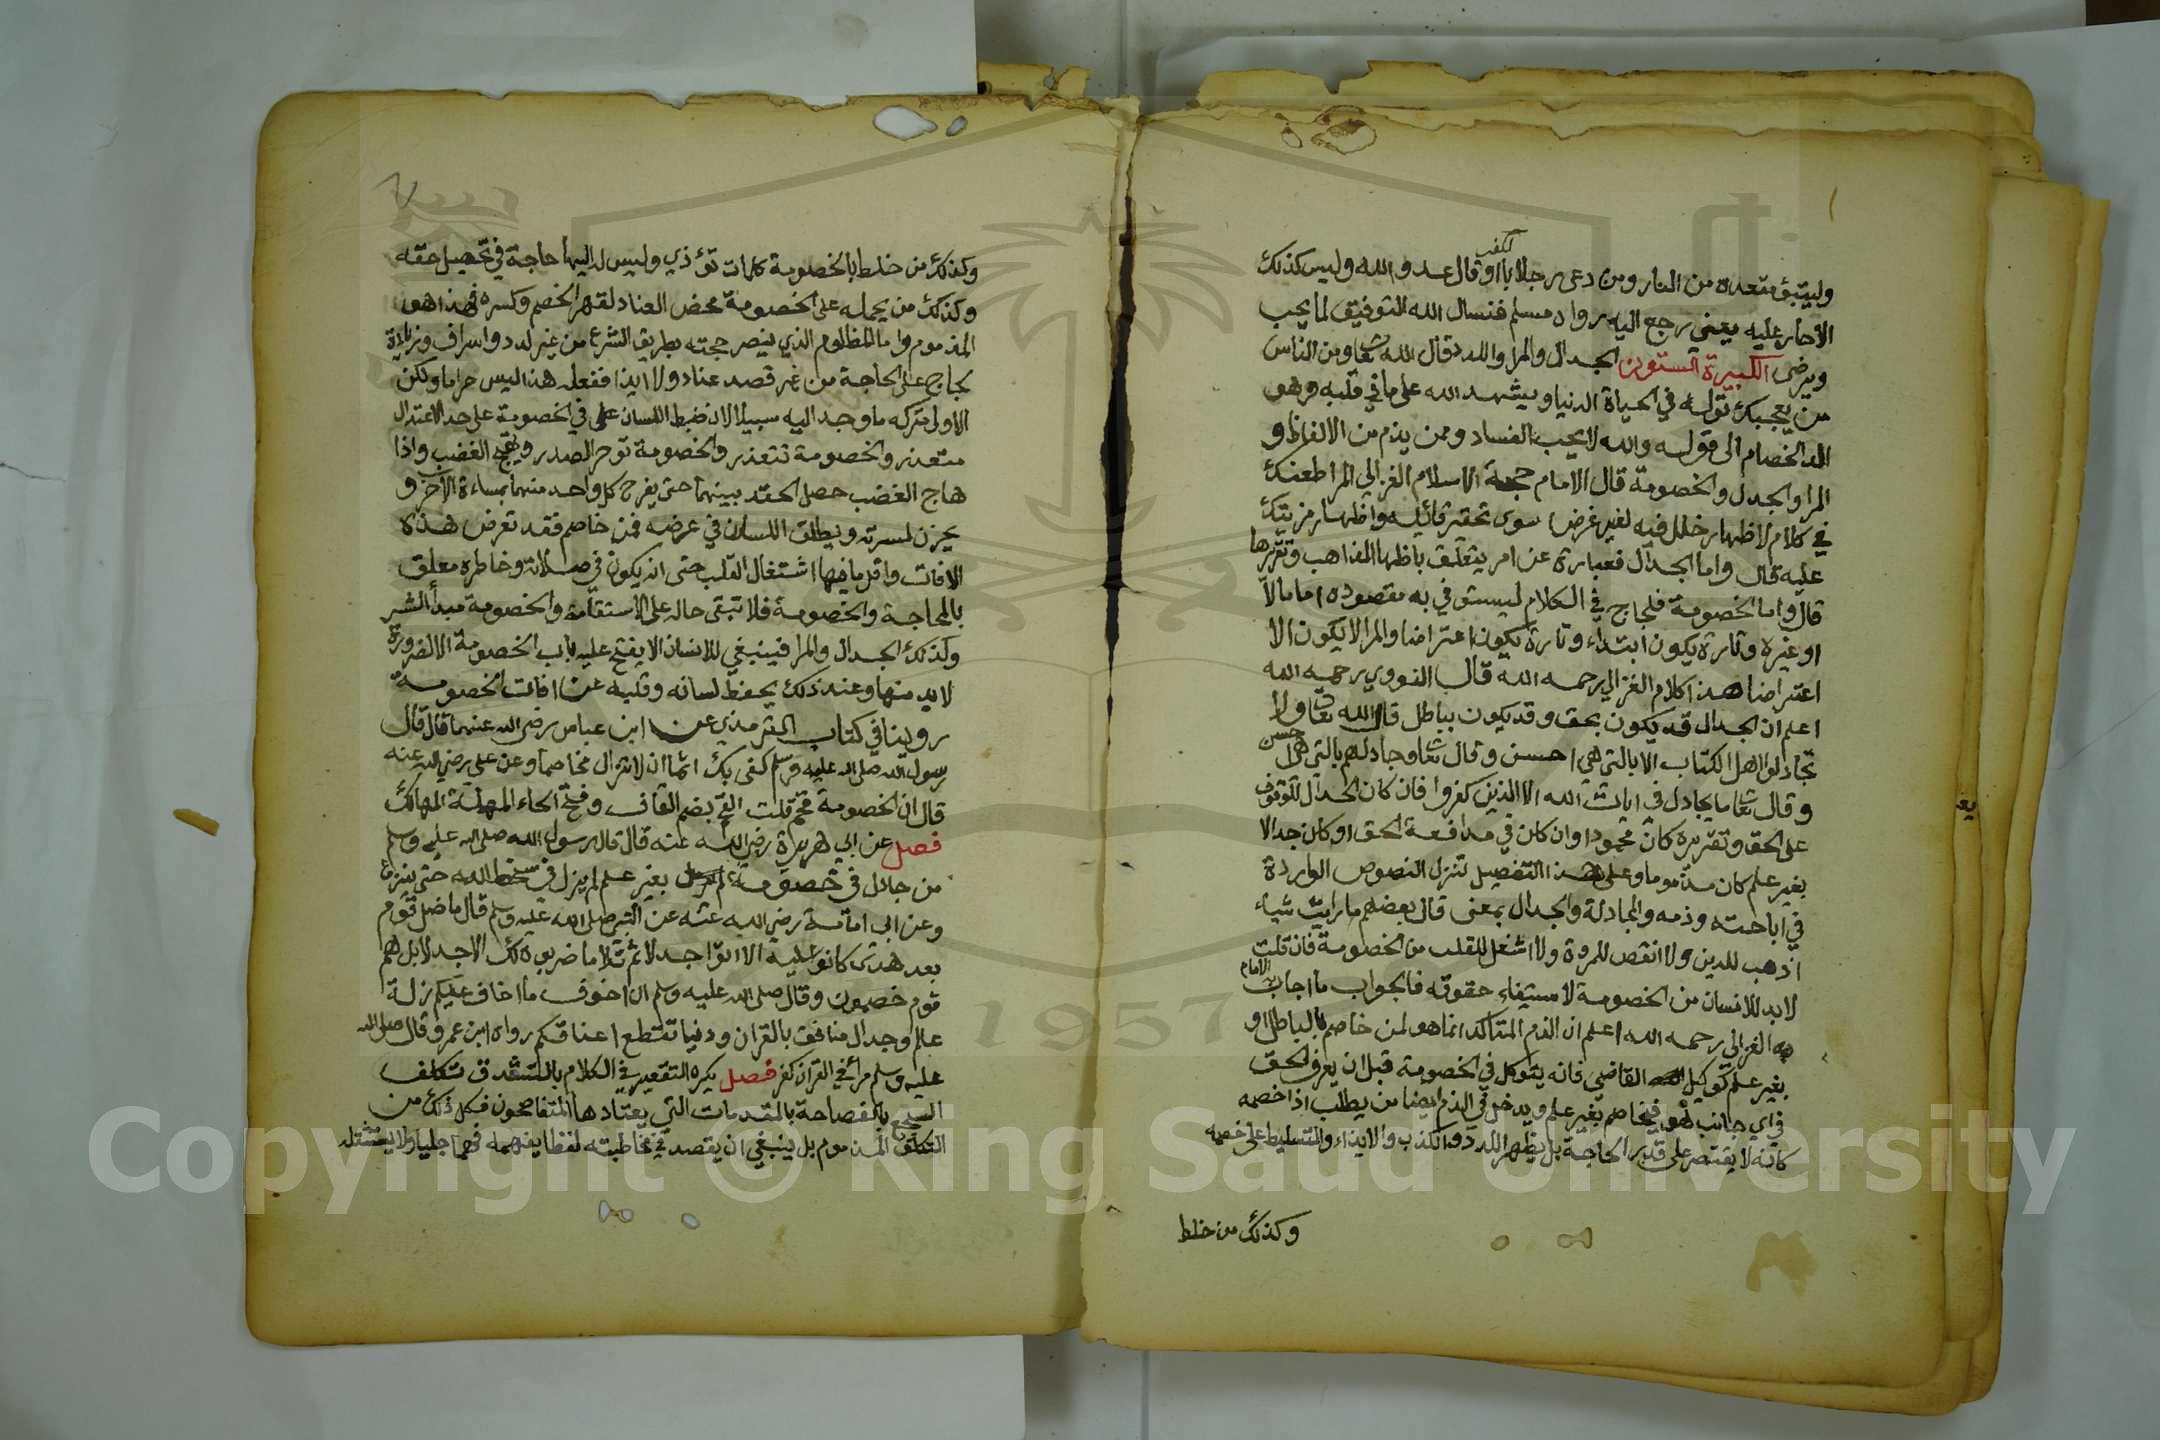 وليتبؤ مقعده من النار ومن دعى رجلا بالكفر او قال عدو الله وليس كذلك
الا حار عليه يعني رجع اليه رواه مسلم فنسال الله التوفيق لما يحب
ويرضى الكبيرة الستون الجدال والمرا واللدد قال الله تعا ومن الناس
من يعجبك قوله في الحياة الدنيا ويشهد الله على ما في قلبه وهو
الد الخصام الى قوله والله لا يحب الفساد ومن يذم من الالفاظ و
المرا والجدل والخصومة قال الامام حجة الاسلام الغزالي المرا طعنك
في كلام لاظهار خلل فيه لغير غرض سوى تحقير قائله واظهار مزيتك
عليه قال واما الجدال فعبارة عن امر يتعلق باظهار المذاهب وتقريرها
قال واما الخصومة فلجاج في الكلام ليستوفي به مقصوده اما مالا
او غيره وتارة يكون ابتداء وتارة يكون اعتراضا والمرا لا يكون الا
اعتراضا هذا كلام الغزالي رحمه الله قال النووي رحمه الله
اعلم ان الجدال قد يكون بحق وقد يكون بباطل قال الله تعا ولا
تجادلوا اهل الكتاب الا بالتي هي احسن وقال تعا وجادلهم بالتي هي احسن
وقال تعا ما يجادل في ايات الله الا الذين كفروا فان كان الجدال للوقوف
على الحق وتقريره كان محمودا وان كان في مدافعة الحق او كان جدالا
بغير علم كان مذموما وعلى هذا التفصيل تنزل النصوص الواردة
في اباحته وذمه والمجادلة والجدال بمعنى قال بعضهم ما رايت شياء
اذهب للدين ولا انقص للمروة ولا اشغل للقلب من الخصومة فان قلت
لا بد للانسان من الخصومة لاستيفاء حقوقه فالجواب ما اجاب به الامام
الغزالي رحمه الله اعلم ان الذم المتاكد انما هو لمن خاصم بالباطل او
بغير علم كوكيل القاضي فانه يتوكل في الخصومة قبل ان يعرف الحق
في اي جانب هو فيخاصم بغير علم ويدخل في الذم ايضا من يطلب اذا خصمه
كانه لا يقتصر على قدر الحاجة بل يظهر اللدد والكذب والايذاء والتسليط على خصمه
وكذلك من خلط
وكذلك من خلط بالخصومة كلمات تؤذي وليس له اليها حاجة في تحصيل حقه
وكذلك من يحمله على الخصومة محض العناد لقهر الخصم وكسره فهذا هو
المذموم واما المظلوم الذي ينصر حجته بطريق الشرع من غير لدد واسراف وزيادة
لجاج على الحاجة من غير قصد عناد ولا ايذا ففعله هذا ليس حراما ولكن
الاولى تركه ما وجد اليه سبيلا لان ضبط اللسان في الخصومة على حد الاعتدال
متعذر والخصومة تتعذر والخصومة توحر الصدر ويهيج الغضب واذا
هاج الغضب حصل الحقد بينهما حتى يفرح كل واحد منهما بمساءة الاخر و
يحزن لمسرته ويطلق اللسان في عرضه فمن خاصم فقد تعرض هذه
الافات واقل ما فيها اشتغال القلب حتى انه يكون في صلاته وخاطره معلق
بالمحاجة والخصومة فلا تبقى حاله على الاستقامة والخصومة مبدأ الشر
وكذلك الجدال والمرا فينبغي للانسان الا يفتح عليه باب الخصومة الا لضرورة
لا بد منها وعند ذلك يحفظ لسانه وقلبه عن افات الخصومة
روينا في كتاب الترمذي عن ابن عباس رضي الله عنهما قال قال
رسول الله صلى الله عليه وسلم كفى بك اثما ان لا تزال مخاصما وعن علي رضي الله عنه
قال ان الخصومة قحم قلت القحم بضم القاف وفتح الحاء المهملة المهالك
فصل عن ابي هريرة رضي الله عنه قال قال رسول الله صلى الله عليه وسلم
من جادل في خصومة بغير علم لم يزل في سخط الله حتى ينزع
وعن ابي امامة رضي الله عنه عن النبي صلى الله عليه وسلم قال ما ضل قوم
بعد هدى كانوا عليه الا اتوا جدلا ثم تلا ما ضربوه لك الا جدلا بل هم
قوم خصمون وقال صلى الله عليه وسلم ان اخوف ما اخاف عليكم زلة
عالم وجدال منافق بالقران ودنيا تقطع اعناقكم رواه ابن عمر وقال صلى الله
عليه وسلم مرأ في القران كفر فصل يكره التقعير في الكلام بالتشدق تكلف
السجع بالفصاحة بالمقدمات التي يعتادها المتفاصحون فكل ذلك من
التكلف المذموم بل ينبغي ان يقصد في مخاطبته لفظا يفهمه فهما جليا ولا يستثقله
1957
Copyright © King Saud University